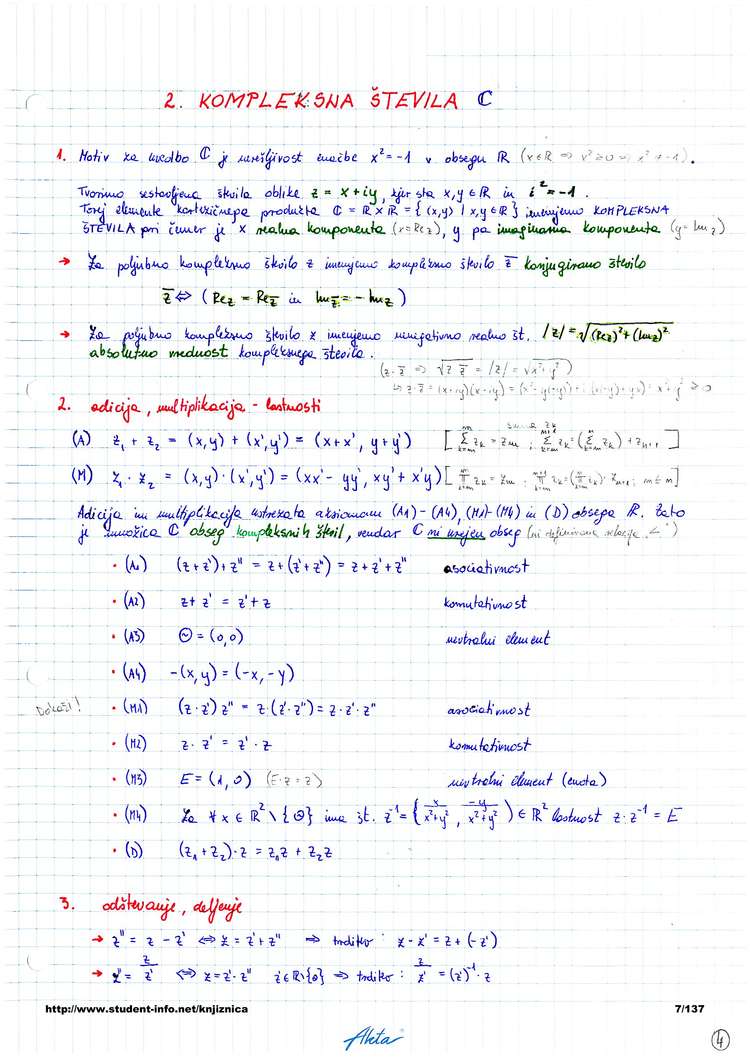 2. KOMPLEKSNA ŠTEVILA ℂ
1. Motiv za uvedbo ℂ je nerešljivost enačbe x² = -1 v obsegu ℝ (x∈ℝ ⇒ x² ≥ 0 ⇒ x² ≠ -1).
Tvorimo sestavljena števila oblike z = x + iy, kjer sta x, y ∈ ℝ in i² = -1.
Torej elemente kartezičnega produkta ℂ = ℝ × ℝ = { (x,y) | x,y ∈ ℝ } imenujemo KOMPLEKSNA
ŠTEVILA pri čemer je x realna komponenta (x = Re z), y pa imaginarna komponenta (y = Im z)
→ Za poljubno kompleksno število z imenujemo kompleksno število z̅ konjugirano število
z̅ ⇔ ( Re z = Re z̅ in Im z̅ = - Im z )
→ Za poljubno kompleksno število z imenujemo nenegativno realno št. |z| = √((Re z)² + (Im z)²
absolutno vrednost kompleksnega števila.
(z·z̅ ⇒ √z z̅ = |z| = √x²+y²)
↳ z·z̅ = (x+iy)(x-iy) = x²+y² ≥ 0
2. adicija, multiplikacija - lastnosti
(A) z₁ + z₂ = (x,y) + (x',y') = (x+x', y+y') [ Σ zₖ = zₘ ; Σ zₖ = (Σ zₖ) + zₙ₊₁ ]
(M) z₁ · z₂ = (x,y) · (x',y') = (xx' - yy', xy' + x'y) [ Π zₖ = zₘ ; Π zₖ = (Π zₖ) · zₙ₊₁ ; m ≤ n ]
Adicija in multiplikacija ustrezata aksiomom (A1) - (A4), (M1) - (M4) in (D) obsega ℝ. Zato
je množica ℂ obseg kompleksnih števil, vendar ℂ ni urejen obseg (ni definirana relacija "<")
• (A1) (z + z') + z'' = z + (z' + z'') = z + z' + z'' asociativnost
• (A2) z + z' = z' + z komutativnost
• (A3) Θ = (0,0) nevtralni element
• (A4) -(x,y) = (-x, -y)
Dokaži! • (M1) (z · z') z'' = z · (z' · z'') = z · z' · z'' asociativnost
• (M2) z · z' = z' · z komutativnost
• (M3) E = (1, 0) (E·z = z) nevtralni element (enota)
• (M4) Za ∀ x ∈ ℝ² \ { Θ } ima št. z⁻¹ = ( x/(x²+y²) , -y/(x²+y²) ) ∈ ℝ² lastnost z · z⁻¹ = E
• (D) (z₁ + z₂) · z = z₁z + z₂z
3. odštevanje, deljenje
→ z'' = z - z' ⇔ z = z' + z'' ⇒ trditev : z - z' = z + (-z')
→ z'' = z/z' ⇔ z = z' · z'' z' ∈ ℝ\{0} ⇒ trditev : z/z' = (z')⁻¹ · z
http://www.student-info.net/knjiznica 7/137
Ahta
4